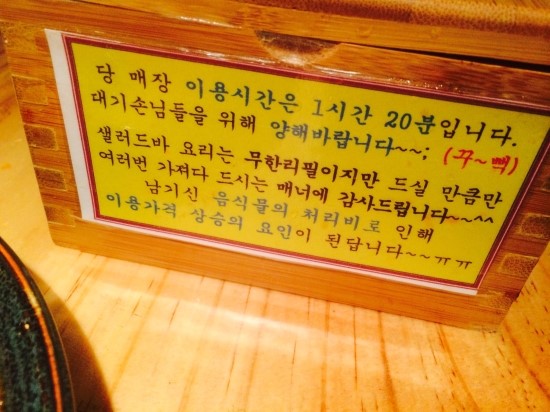 당 매장 이용시간은 1시간 20분입니다.
대기손님들을 위해 양해바랍니다~~; (꾸~뻑)
샐러드바 요리는 무한리필이지만 드실 만큼만
여러번 가져다 드시는 매너에 감사드립니다~~^^
남기신 음식물의 처리비로 인해
이용가격 상승의 요인이 된답니다~~ㅠㅠ